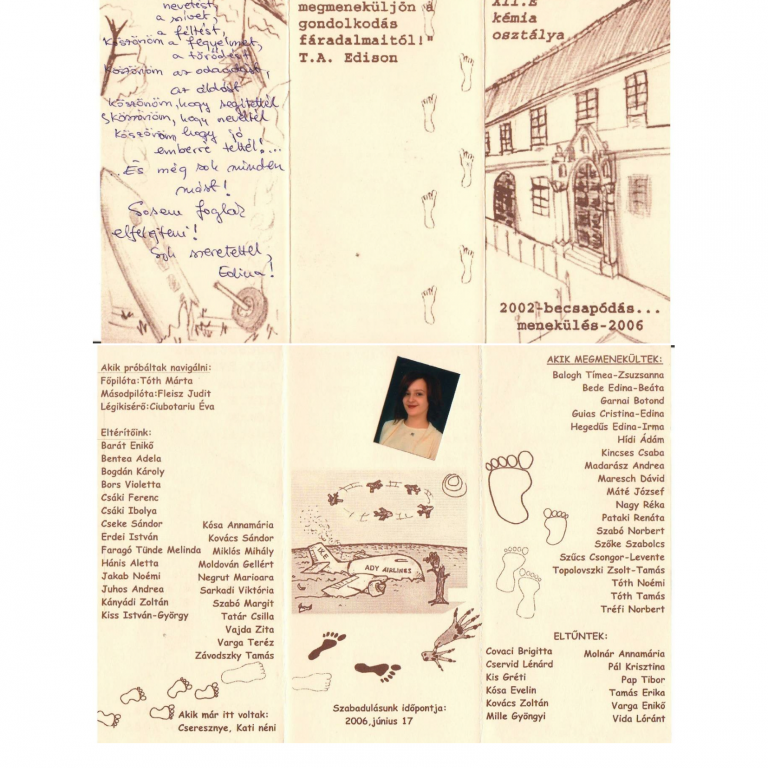 nevetést,
a szívet,
a féltést,
Köszönöm a fegyelmet,
a törődést
Köszönöm az odaadást,
az áldást
Köszönöm, hogy segítettél
Köszönöm, hogy neveltél
Köszönöm hogy jó
emberré tettél!...
És még sok minden
mást!
Sosem foglak
elfelejteni!
Sok szeretettel,
Edina!
megmeneküljön a
gondolkodás
fáradalmaitól!"
T.A. Edison
XII.E
kémia
osztálya
2002-becsapódás...
menekülés-2006
Akik próbáltak navigálni:
Főpilóta:Tóth Márta
Másodpilóta:Fleisz Judit
Légikisérő:Ciubotariu Éva
Eltérítőink:
Barát Enikő
Bentea Adela
Bogdán Károly
Bors Violetta
Csáki Ferenc
Csáki Ibolya
Cseke Sándor
Erdei István
Faragó Tünde Melinda
Hánis Aletta
Jakab Noémi
Juhos Andrea
Kányádi Zoltán
Kiss István-György
Kósa Annamária
Kovács Sándor
Miklós Mihály
Moldován Gellért
Negrut Marioara
Sarkadi Viktória
Szabó Margit
Tatár Csilla
Vajda Zita
Varga Teréz
Závodszky Tamás
Akik már itt voltak:
Cseresznye, Kati néni
IX.E
ADY AIRLINES
Szabadulásunk időpontja:
2006,június 17
AKIK MEGMENEKÜLTEK:
Balogh Tímea-Zsuzsanna
Bede Edina-Beáta
Garnai Botond
Guias Cristina-Edina
Hegedűs Edina-Irma
Hídi Ádám
Kincses Csaba
Madarász Andrea
Maresch Dávid
Máté József
Nagy Réka
Pataki Renáta
Szabó Norbert
Szőke Szabolcs
Szűcs Csongor-Levente
Topolovszki Zsolt-Tamás
Tóth Noémi
Tóth Tamás
Tréfi Norbert
ELTŰNTEK:
Covaci Brigitta
Cservid Lénárd
Kis Gréti
Kósa Evelin
Kovács Zoltán
Mille Gyöngyi
Molnár Annamária
Pál Krisztina
Pap Tibor
Tamás Erika
Varga Enikő
Vida Lóránt